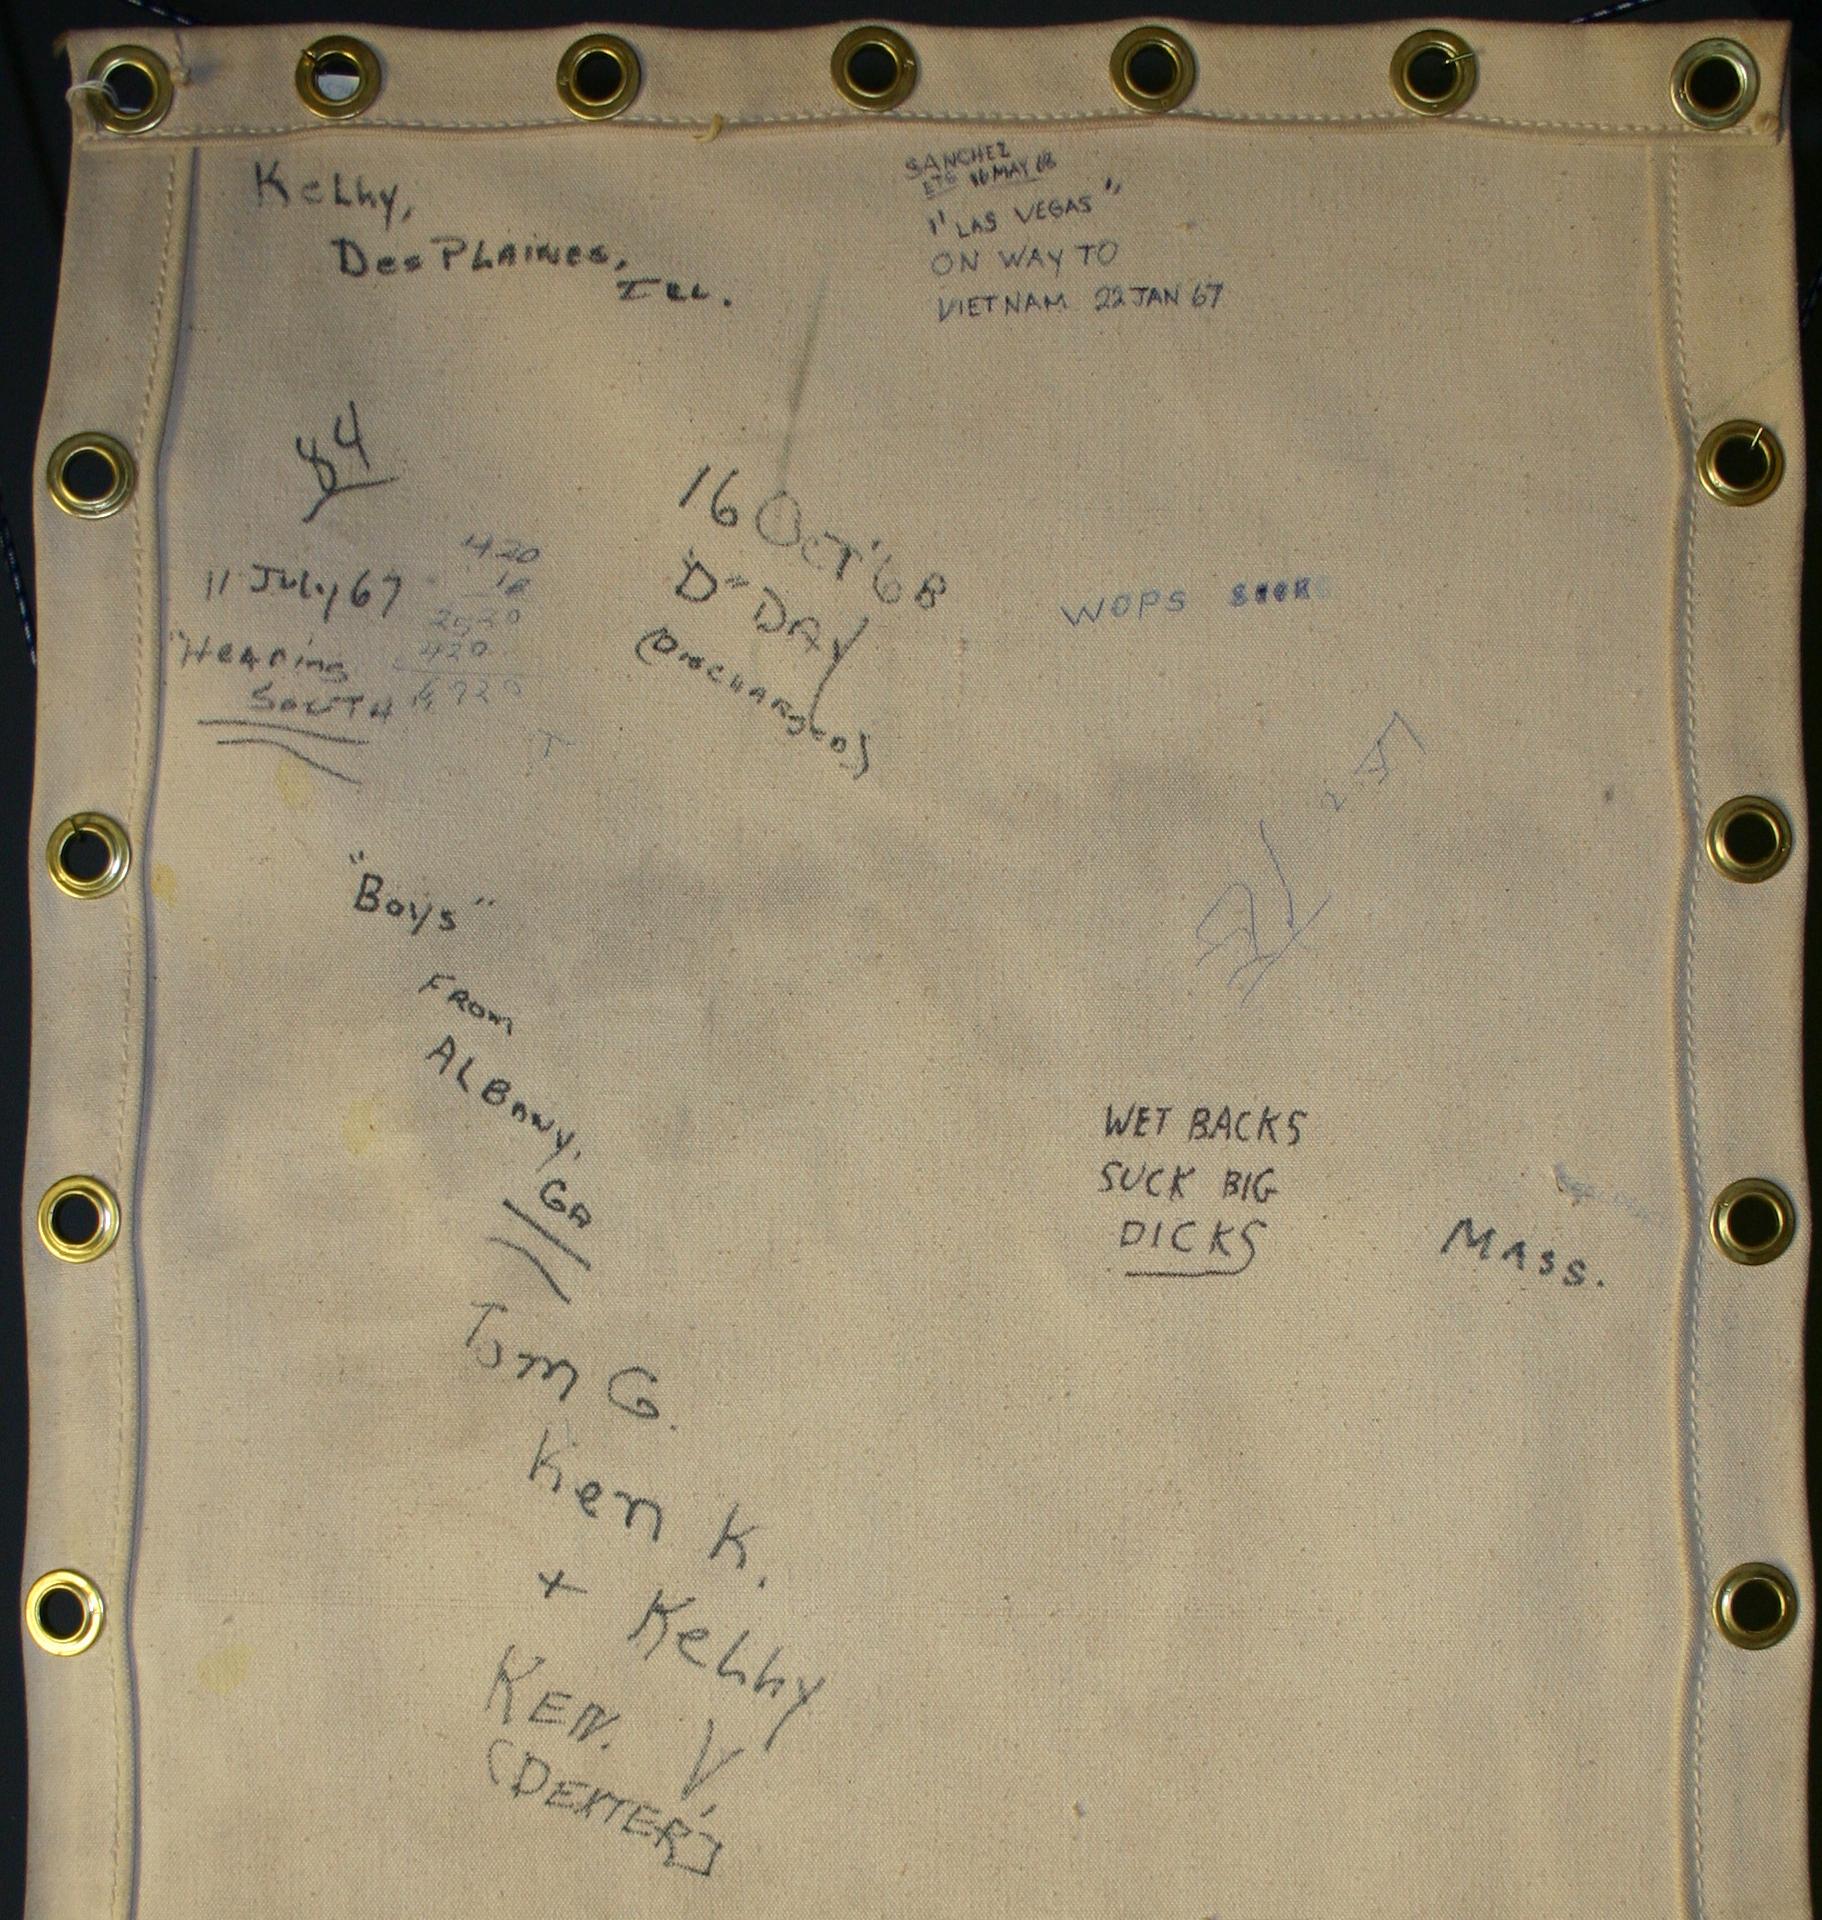 Kelly,
Des Plaines,
Ill.
SANCHEZ
ETS 16 MAY 68
"LAS VEGAS"
ON WAY TO
VIETNAM 22 JAN 67
84
11 July 67
"Heading
South
1420
2520
420
16 Oct '68
"D" DAY
(Discharged)
WOPS
"Boys"
From
ALBany,
GA
Tom G.
Ken K.
+ Kelly
KEN. V,
(DEXTER]
WET BACKS
SUCK BIG
DICKS
MASS.